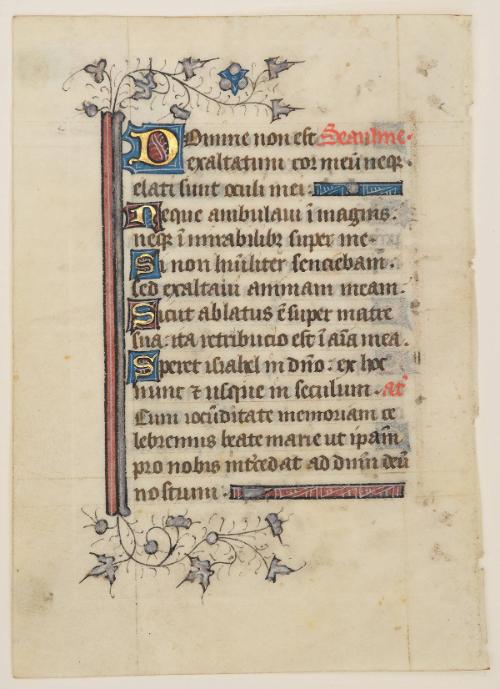 Domine non est Seaulme.
exaltatum cor meū neqꝫ
elati sunt oculi mei.
Neque ambulaui ī magins.
neqꝫ ī mirabilibꝫ super me.
Si non hūiliter senciebam.
sed exaltaui animam meam.
Sicut ablatus ē super matre
sua. ita retribucio est ī aīa mea.
Speret israhel in dn̄o. ex hoc
nunc ⁊ usque in seculum. an̄
Cum iocūditate memoriam ce
lebremus beate marie ut ipam̄
pro nobis int̄cedat ad dn̄m deū
nostrum.